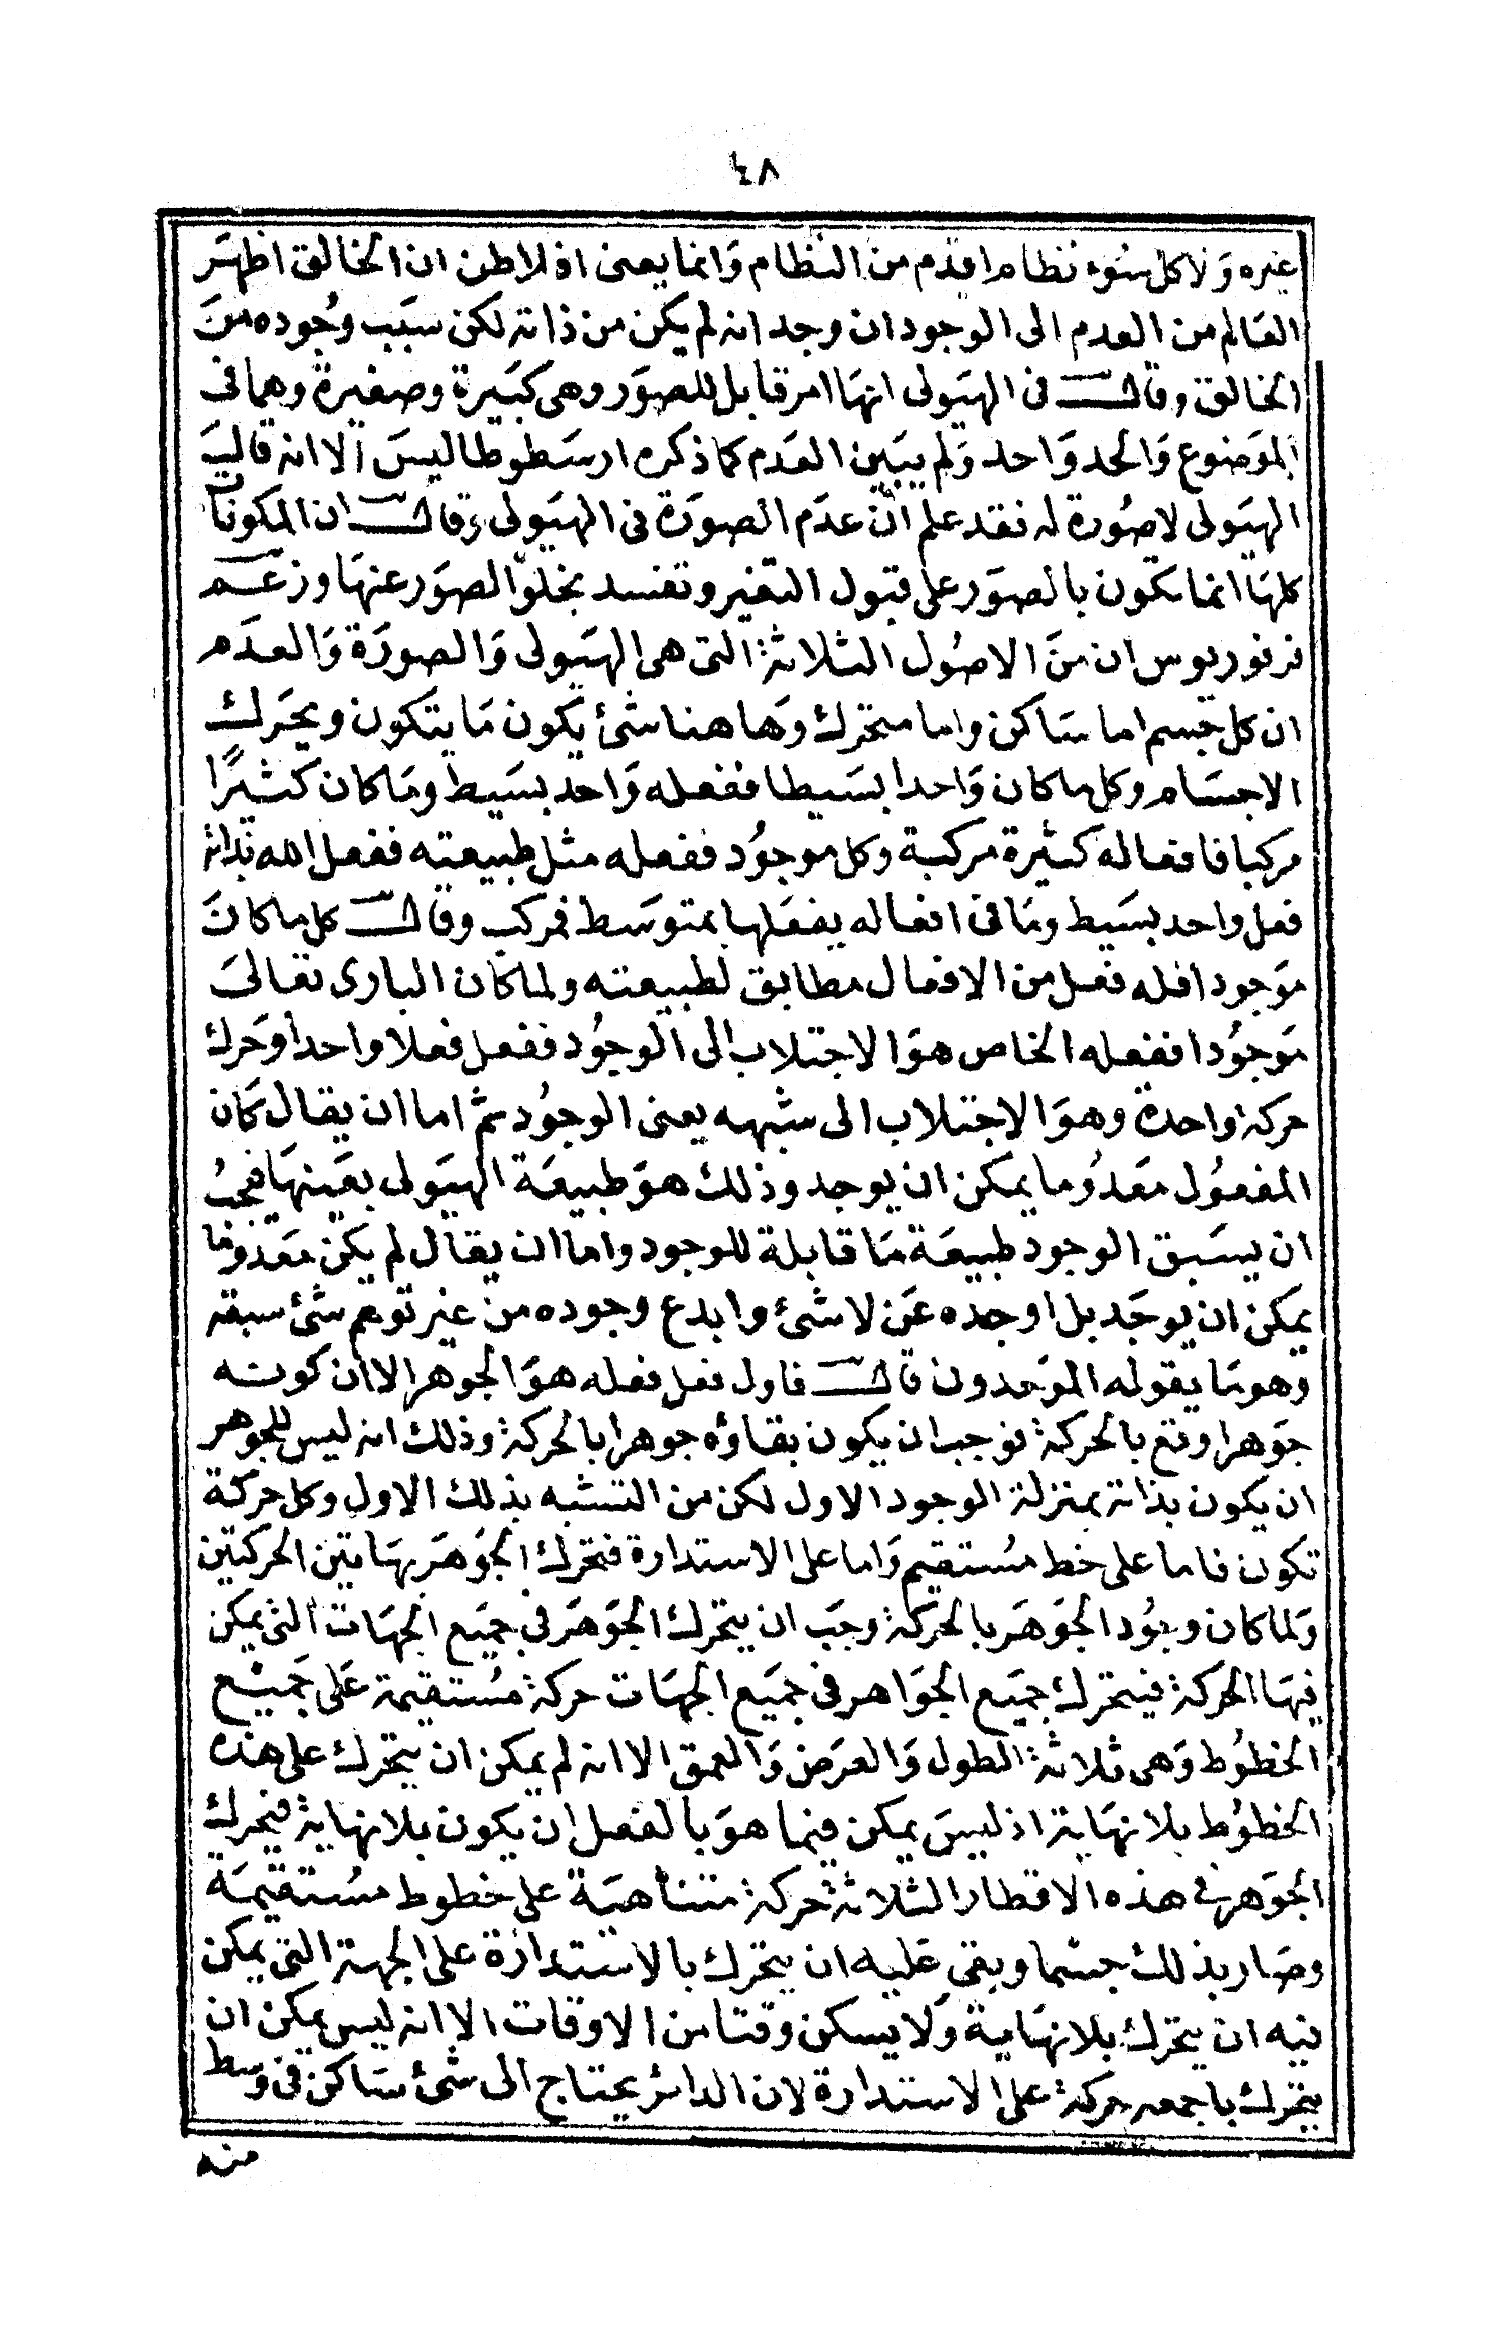 ٤٨
غيره ولا كل سوء نظام اقدم من النظام وانما يعنى افلاطن ان الخالق اظهر
العالم من العدم الى الوجود ان وجد انه لم يكن من ذاته لكن سبب وجوده من
الخالق وقال فى الهيولى انها امر قابل للصور وهى كبيرة وصغيرة وهما فى
الموضوع والحد واحد ولم يبين العدم كما ذكره ارسطوطاليس الا انه قال
الهيولى لا صورة له فقد علم ان عدم الصورة فى الهيولى وقال ان المكونات
كلها انما تتكون بالصور على قبول التغير وتفسد بخلو الصور عنها وزعم
فرفوريوس ان من الاصول الثلاثة التى هى الهيولى والصورة والعدم
ان كل جسم اما ساكن واما متحرك وهاهنا شئ يكون ما يتكون ويحرك
الاجسام وكل ما كان واحدا بسيطا ففعله واحد بسيط وما كان كثيرا
مركبا فافعاله كثيرة مركبة وكل موجود ففعله مثل طبيعته ففعل الله بذاته
فعل واحد بسيط وما فى افعاله يفعلها بمتوسط فمركب وقال كل ما كان
موجودا فله فعل من الافعال مطابق لطبيعته ولما كان البارى تعالى
موجودا ففعله الخاص هو الاجتلاب الى الوجود ففعل فعلا واحدا وحرك
حركة واحدة وهو الاجتلاب الى شبهه يعنى الوجود ثم اما ان يقال كان
المفعول معدوما يمكن ان يوجد وذلك هو طبيعة الهيولى بعينها فيجب
ان يسبق الوجود طبيعة ما قابلة للوجود واما ان يقال لم يكن معدوما
يمكن ان يوجد بل اوجده عن لا شئ وابدع وجوده من غير توهم شئ سبقه
وهو ما يقوله الموحدون قال فاول فعل فعله هو الجوهر الا ان كونه
جوهرا وقع بالحركة فوجب ان يكون بقاؤه جوهرا بالحركة وذلك انه ليس للجوهر
ان يكون بذاته بمنزلة الوجود الاول لكن من التشبه بذلك الاول وكل حركة
تكون فاما على خط مستقيم واما على الاستدارة فتحرك الجوهر بهاتين الحركتين
ولما كان وجود الجوهر بالحركة وجب ان يتحرك الجوهر فى جميع الجهات التى يمكن
فيها الحركة فيتحرك جميع الجواهر فى جميع الجهات حركة مستقيمة على جميع
الخطوط وهى ثلاثة الطول والعرض والعمق الا انه لم يمكن ان يتحرك على هذه
الخطوط بلا نهاية اذ ليس يمكن فيما هو بالفعل ان يكون بلا نهاية فيحرك
الجوهر فى هذه الاقطار الثلاثة حركة متناهية على خطوط مستقيمة
وصار بذلك جسما وبقى عليه ان يتحرك بالاستدارة على الجهة التى يمكن
فيه ان يتحرك بلا نهاية ولا يسكن وقتا من الاوقات الا انه ليس يمكن ان
يتحرك باجمعه حركة على الاستدارة لان الدائر يحتاج الى شئ ساكن فى وسط
منه